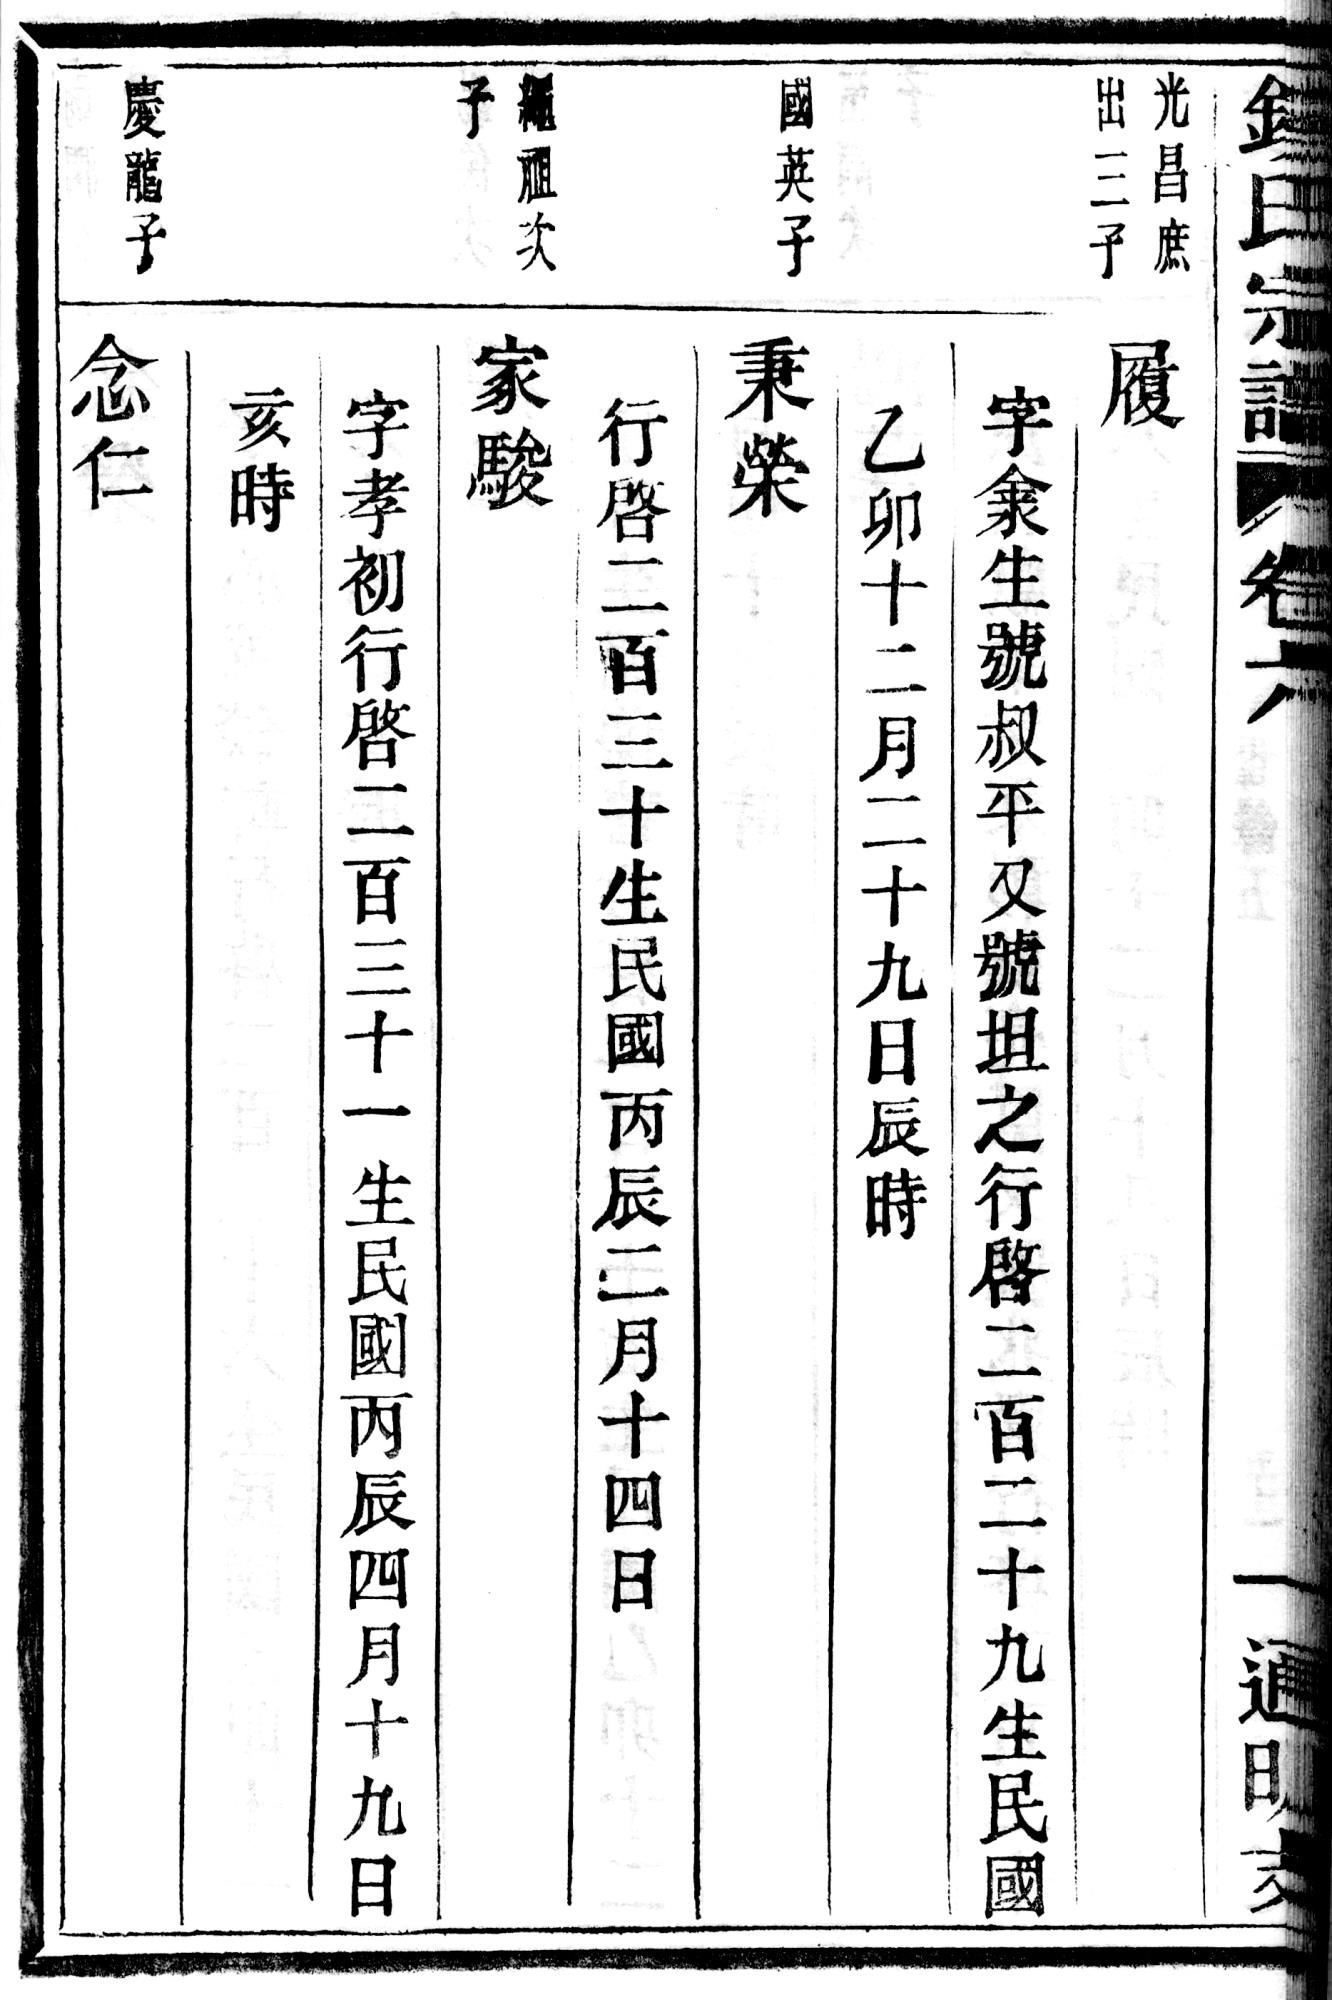 氏宗譜
卷六
一
通明支
光昌庶
出三子
履
字彖生號叔平又號坦之行啓二百二十九生民國
乙卯十二月二十九日辰時
國英子
秉榮
行啓二百三十生民國丙辰二月十四日
繩祖次
子
家駿
字孝初行啓二百三十一生民國丙辰四月十九日
亥時
慶龍子
念仁